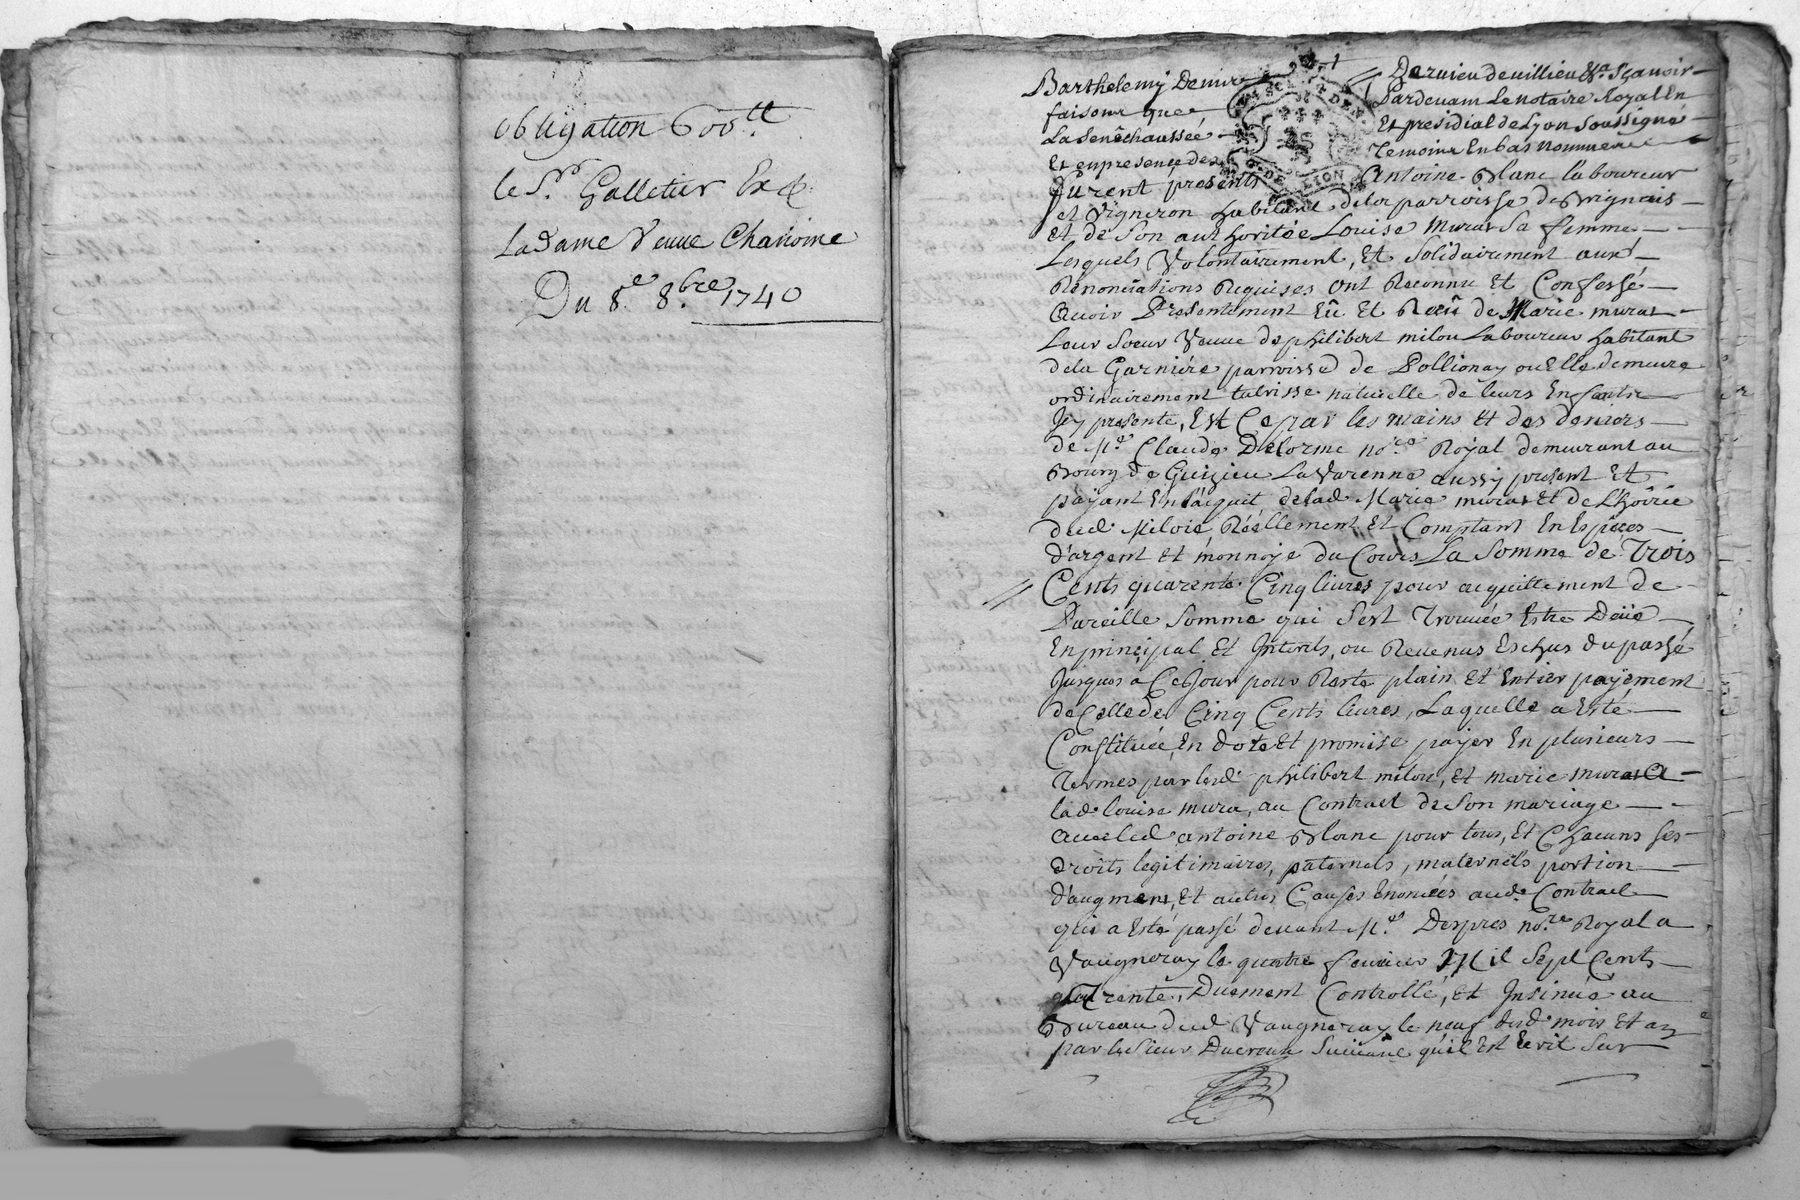 obligation 600tt
le Sr. Galletier Ex&
La dame Veuve Chanoine
Du 8e. 8bre. 1740
Barthelemy Demur Dervieu de villieu &a. Sçavoir
faisons que Pardevant Le notaire Royal En
La Senêchaussée Et presidial de Lyon Soussigné
Et en presence des Temoins En bas nommés
furent presents Antoine Blanc laboureur
et Vigneron habitant de la parroisse de Brignais
Et de Son authoritée Louise Murat Sa femme
Lesquels Volontairement, Et Solidairement aux
Renonciations Requises ont Reconnu Et Confessé
avoir Presentement Eû Et Reçû de Marie murat
Leur Soeur Veuve de philibert milou Laboureur habitant
de la Garnière parroisse de Pollionay ou Elle demeure
ordinairement tutrisse naturelle de leurs Enfants
Icy presente, Et Ce par les mains Et des deniers
de Me. Claude Delorme nore. Royal demeurant au
Bourg de Guizieu La Varenne aussy present Et
payant En l'acquit de lad. Marie murat Et de L'hoirie
dud. Milou, Réellement Et Comptant En Espéces
d'argent Et monnoye du Cours La Somme de Trois
Cents quarente Cinq livres pour acquittement de
Pareille Somme qui S'est Trouvée Estre Deüe
En principal Et Interets, ou Revenus Eschus du passé
Jusques a Ce Jour pour Reste plain Et Entier payement
de Celle de Cinq Cents livres, Laquelle a Esté
Constituée En dote Et promise payer En plusieurs
Termes par led. philibert milou, Et marie murat A
lad. louise mura, au Contract de Son mariage
avec led. antoine Blanc pour tous, Et Chacuns ses
droits legitimaires, paternels, maternels portion
d'augment, Et autres Causes Enoncées aud. Contract
qui a Esté passé devant Me. Despres nore. Royal a
Vaugneray le quatre fevrier Mil Sept Cents
Trente, Duement Controllé, Et Insinué au
Bureau dud. Vaugneray le neuf dud. mois Et an
par le Sieur Ducreux Suivant qu'il Est Ecrit Sur